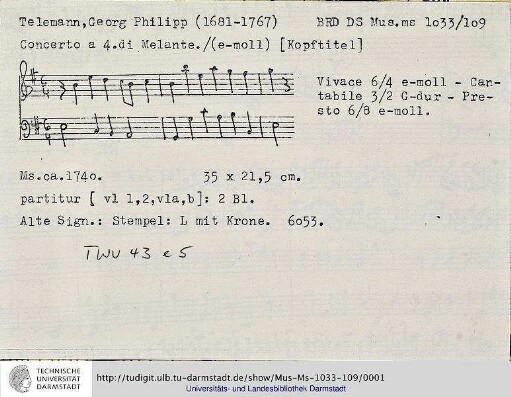 Telemann,Georg Philipp (1681-1767) BRD DS Mus.ms 1o33/1o9
Concerto a 4.di Melante./(e-moll) [Kopftitel]
Vivace 6/4 e-moll - Can-
tabile 3/2 C-dur - Pre-
sto 6/8 e-moll.
Ms.ca.174o. 35 x 21,5 cm.
partitur [ vl 1,2,vla,b]: 2 Bl.
Alte Sign.: Stempel: L mit Krone. 6o53.
TWV 43 e 5
TECHNISCHE
UNIVERSITÄT
DARMSTADT
http://tudigit.ulb.tu-darmstadt.de/show/Mus-Ms-1033-109/0001
Universitäts- und Landesbibliothek Darmstadt